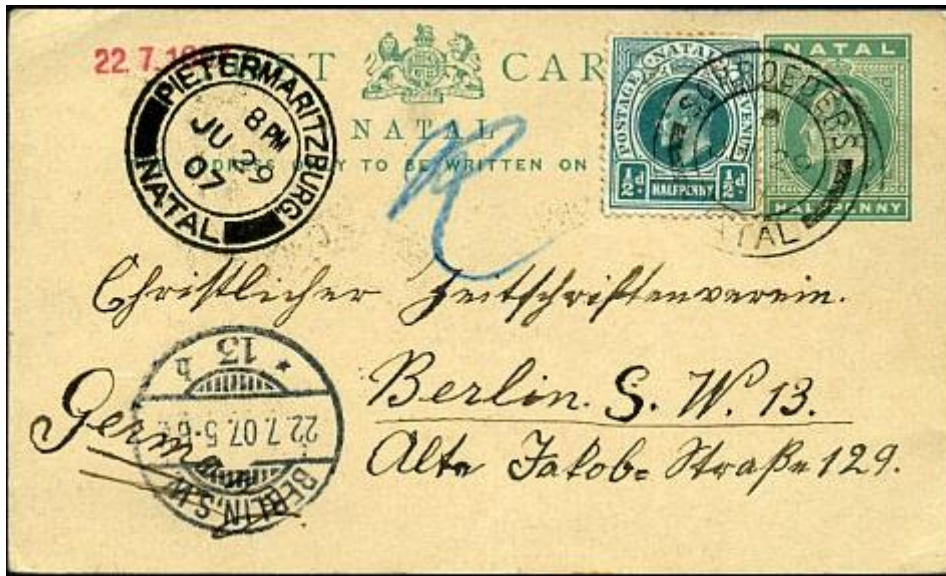 22.7.
POST CARD
NATAL
ADDRESS ONLY TO BE WRITTEN ON
PIETERMARITZBURG
8 PM
JU 29
07
NATAL
POSTAGE NATAL REVENUE
½d HALFPENNY ½d
NATAL
HALFPENNY
SCHROEDERS
NATAL
R
Christlicher Zeitschriftenverein.
Berlin. S. W. 13.
Alte Jakob= Straße 129.
Germ
13 b
22.7.07. 5-6
BERLIN, S.W.